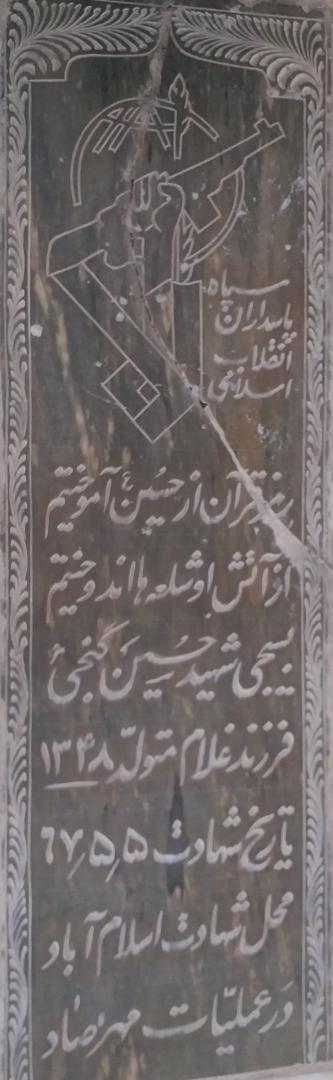 سپاه
پاسداران
انقلاب
اسلامی
رمز قرآن از حسینؑ آموختیم
از آتش او شعله ها اندوختیم
بسیجی شهید حسین گنجی
فرزند غلام متولّد ۱۳۴۸
تاریخ شهادت ۶۷٫۵٫۵
محل شهادت اسلام آباد
در عملیّات مرصاد